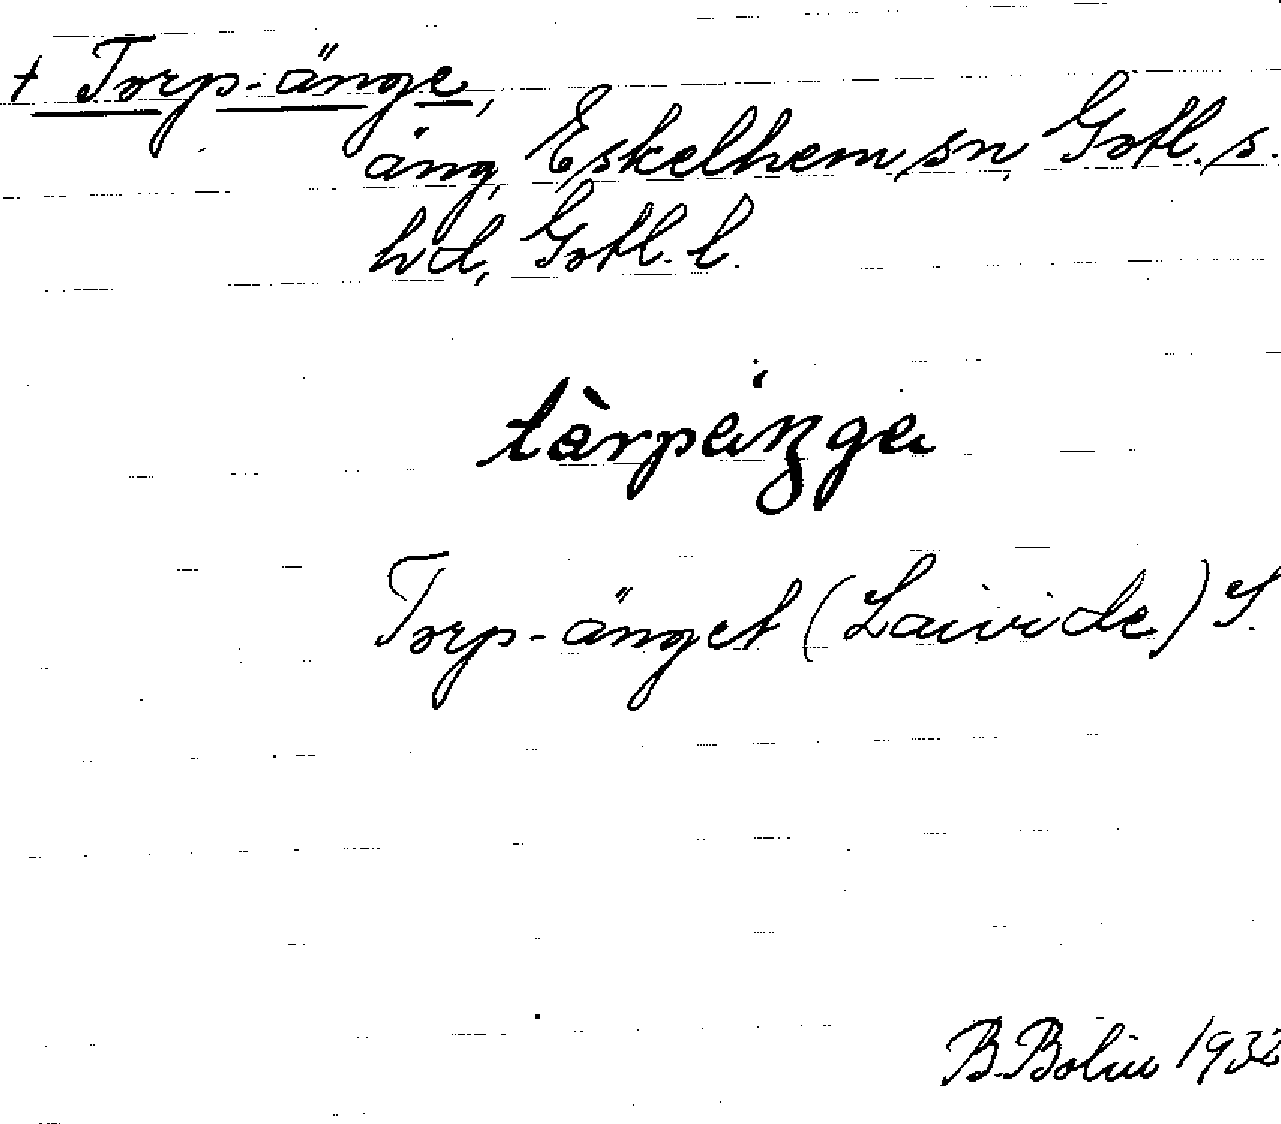 + Torp-änge,
äng, Eskelhem sn, Gotl. s.
hd, Gotl. l.
Torp-änget (Laivide) S.
B. Bolin 1932